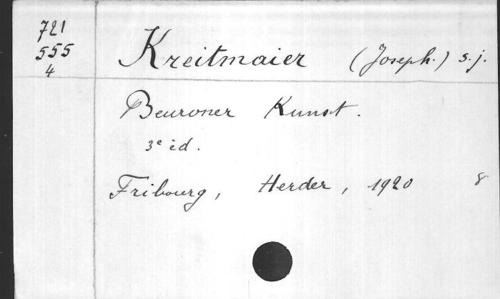 721
555
4
Kreitmaier (Joseph.) s.j.
Beuroner Kunst.
3e éd.
Fribourg, Herder, 1920 8